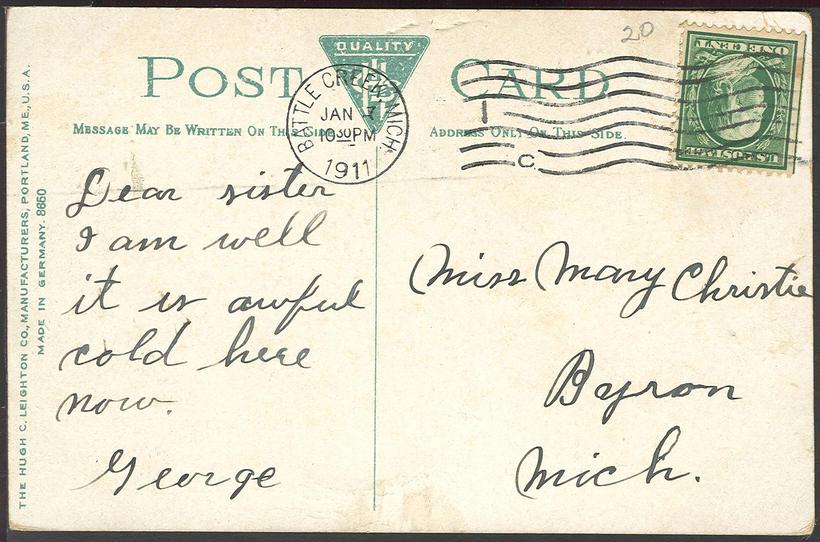 20
QUALITY
POST CARD
MESSAGE MAY BE WRITTEN ON THIS SIDE.
ADDRESS ONLY ON THIS SIDE.
BATTLE CREEK, MICH.
JAN 7
10 30 PM
1911
C
ONE CENT
U.S. POSTAGE
THE HUGH C. LEIGHTON CO., MANUFACTURERS, PORTLAND, ME., U.S.A.
MADE IN GERMANY. 8650
Dear sister
I am well
it is awful
cold here
now.
George
Miss Mary Christie
Byron
Mich.